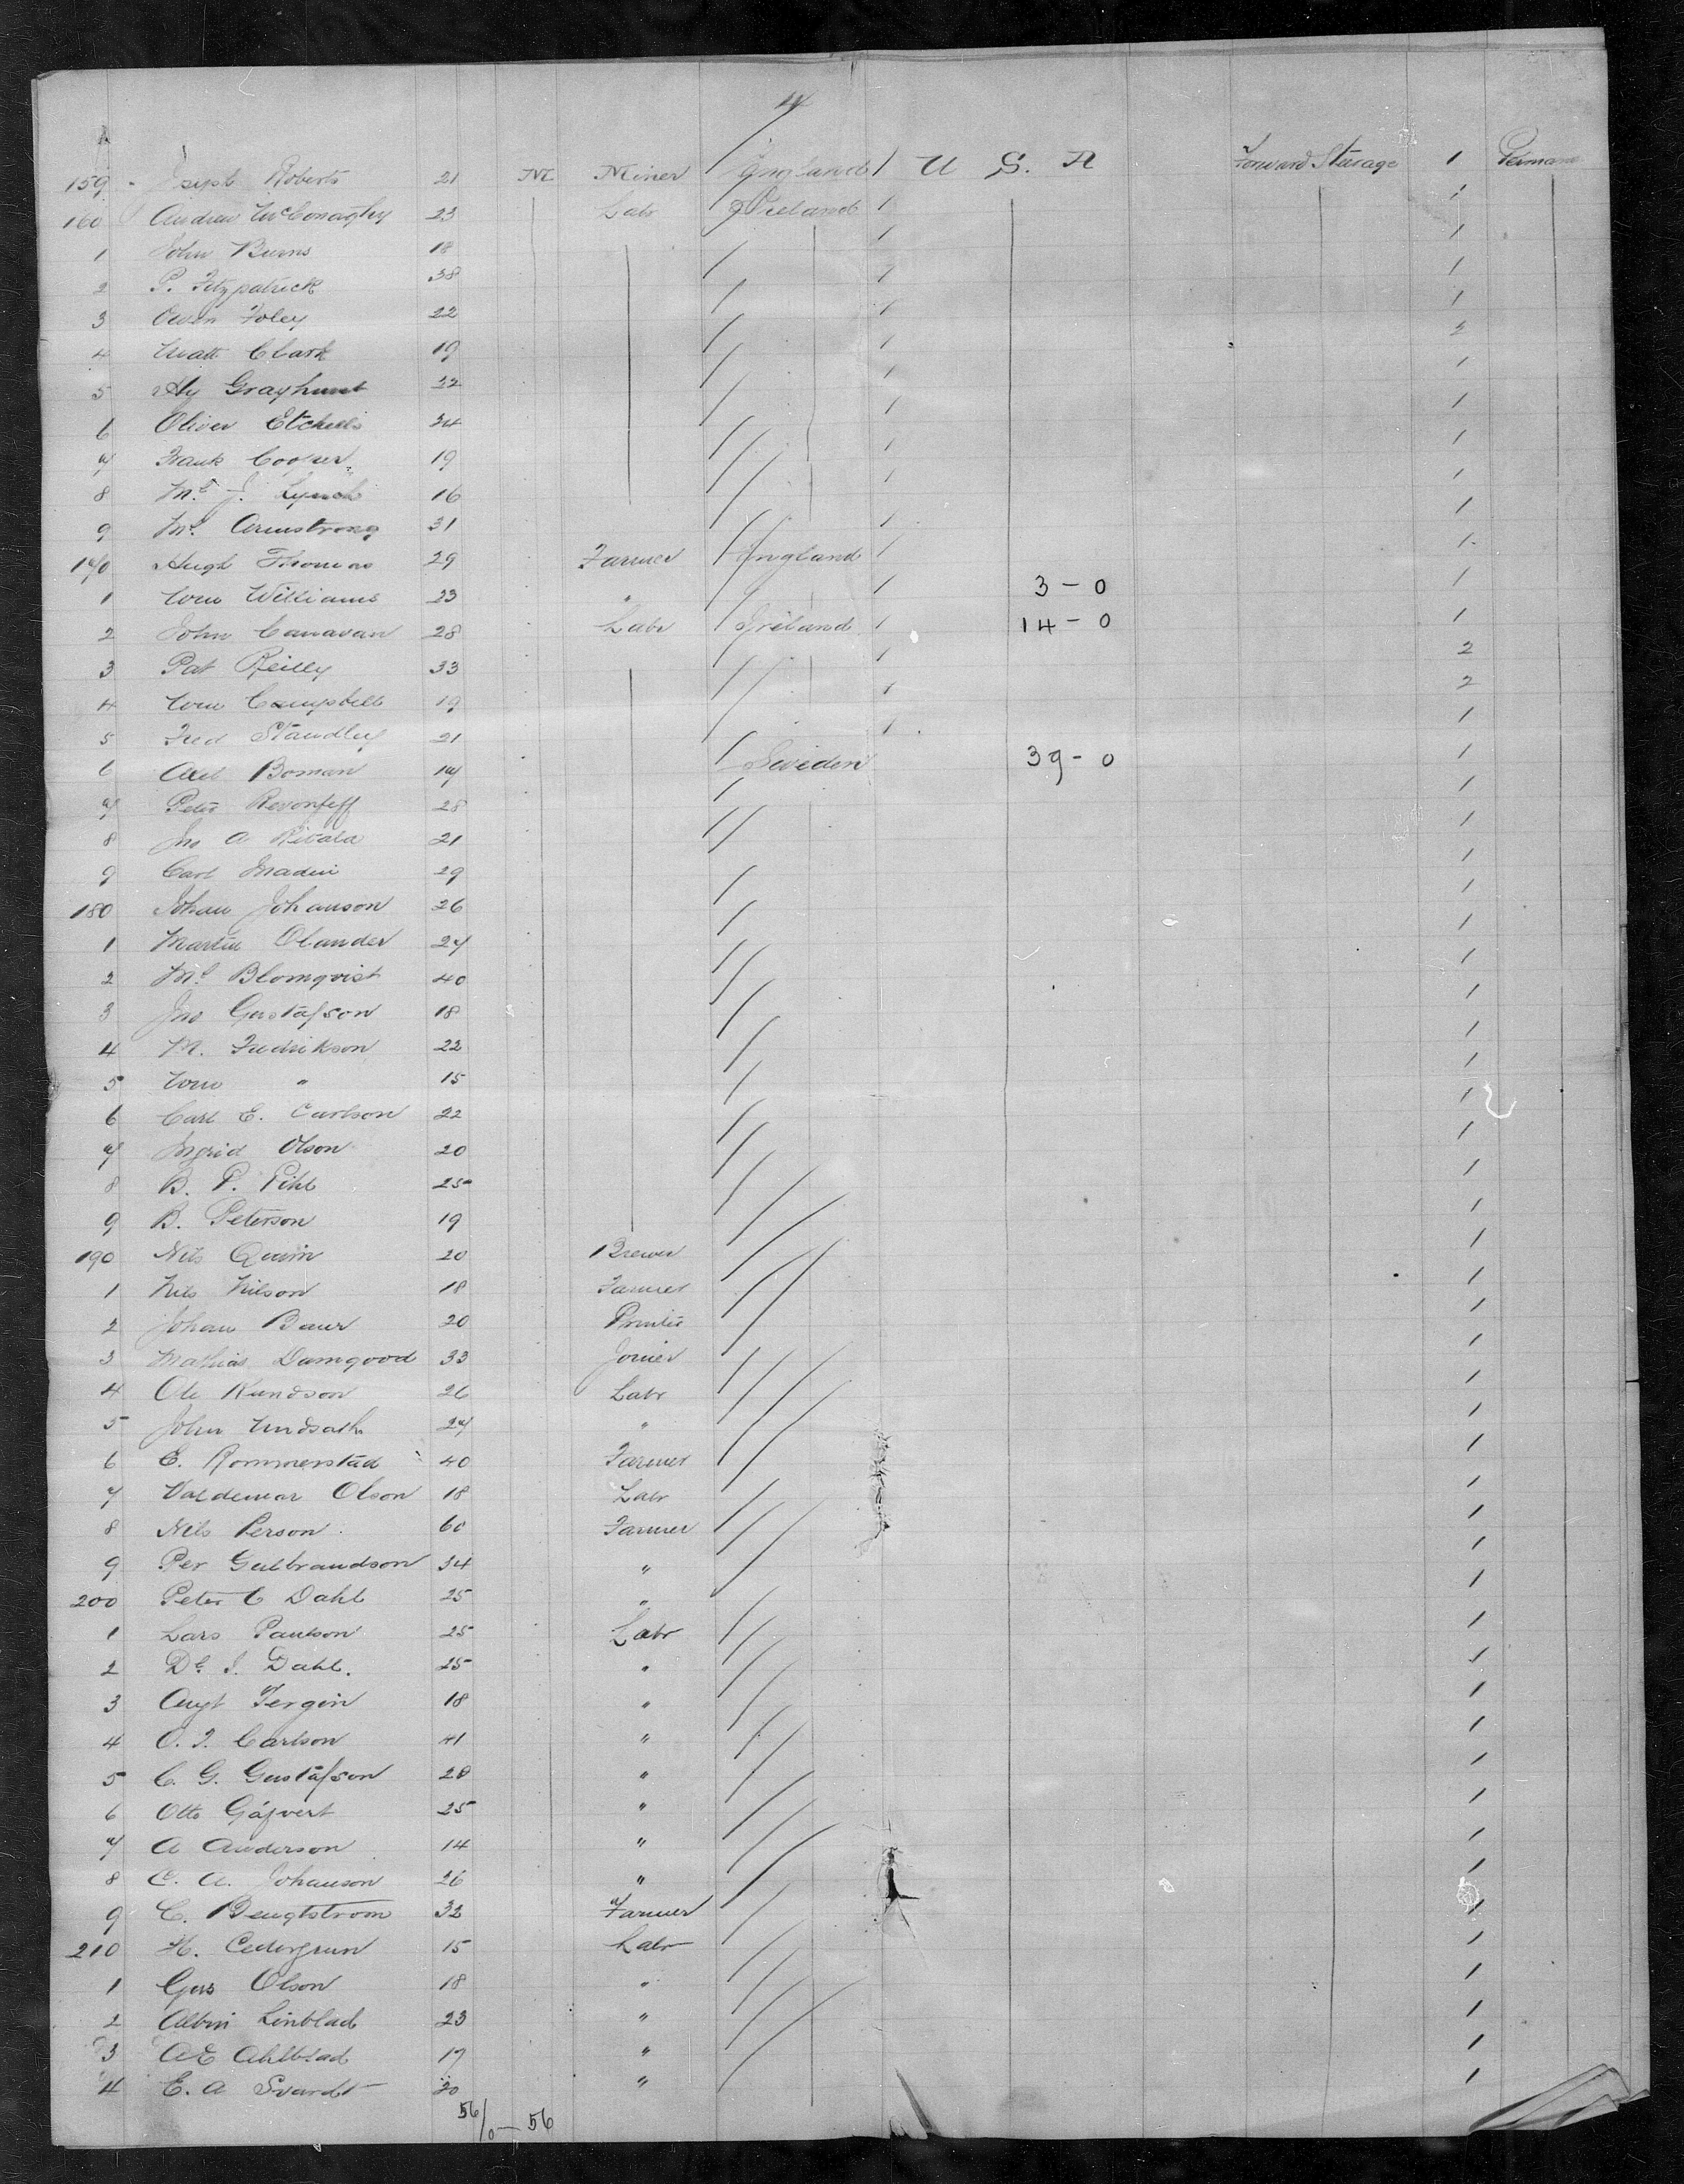 4
159 Joseph Roberts 21 M Miner England 1 U S. A Forward Steerage 1 Germanic
160 Andrew McConaghy 23 Labr Ireland 1 1
1 John Burns 18 1 1
2 P. Fitzpatrick 38 1 1
3 Owen Foley 22 1 1
4 Matt Clark 19 1 2
5 Hy Grayhunt 32 1 1
6 Oliver Etchells 34 1 1
7 Frank Cooper 19 1 1
8 Ml J. Lynch 16 1 1
9 Ml Armstrong 31 1 1
170 Hugh Thomas 29 Farmer England 1 1
1 Wm Williams 23 " 1 3 - 0 1
2 John Canavan 28 Labr Ireland 1 14 - 0 1
3 Pat Reilly 33 1 2
4 Wm Campbell 19 1 2
5 Fred Standley 21 1 1
6 Axel Boman 17 Sweden 39 - 0 1
7 Peter 28 1
8 Jno A 21 1
9 Carl 29 1
180 Johan Johanson 26 1
1 Martin Olander 27 1
2 Ml Blomqvist 40 1
3 Jno Gustafson 18 1
4 M. Fredrikson 22 1
5 Wm " 15 1
6 Carl E. Carlson 22 1
7 Ingrid Olson 20 1
8 B. P. Pihl 25 1
9 B. Peterson 19 1
190 Nils Quim 20 Brewer 1
1 Nils Nilson 18 Farmer 1
2 Johan Baur 20 Printer 1
3 Mathias Damgood 33 Joiner 1
4 Ole Kundson 26 Labr 1
5 John 27 " 1
6 E. Rommerstad 40 Farmer 1
7 Valdemar Olson 18 Labr 1
8 Nils Person 60 Farmer 1
9 Per Gulbrandson 34 " 1
200 Peter C Dahl 25 " 1
1 Lars Paulson 25 Labr 1
2 Dl J. Dahl. 25 " 1
3 Augt Fergin 18 " 1
4 O. F. Carlson 41 " 1
5 C. G. Gustafson 28 " 1
6 Otto Gafvert 25 " 1
7 A Anderson 14 " 1
8 C. A. Johanson 26 " 1
9 C. Bengtstrom 32 Farmer 1
210 H. Cedergrun 15 Labr 1
1 Gus Olson 18 " 1
2 Albin Linblad 23 " 1
3 AE Ahlblad 17 " 1
4 E. A Svardt 20 " 1
56/0 — 56